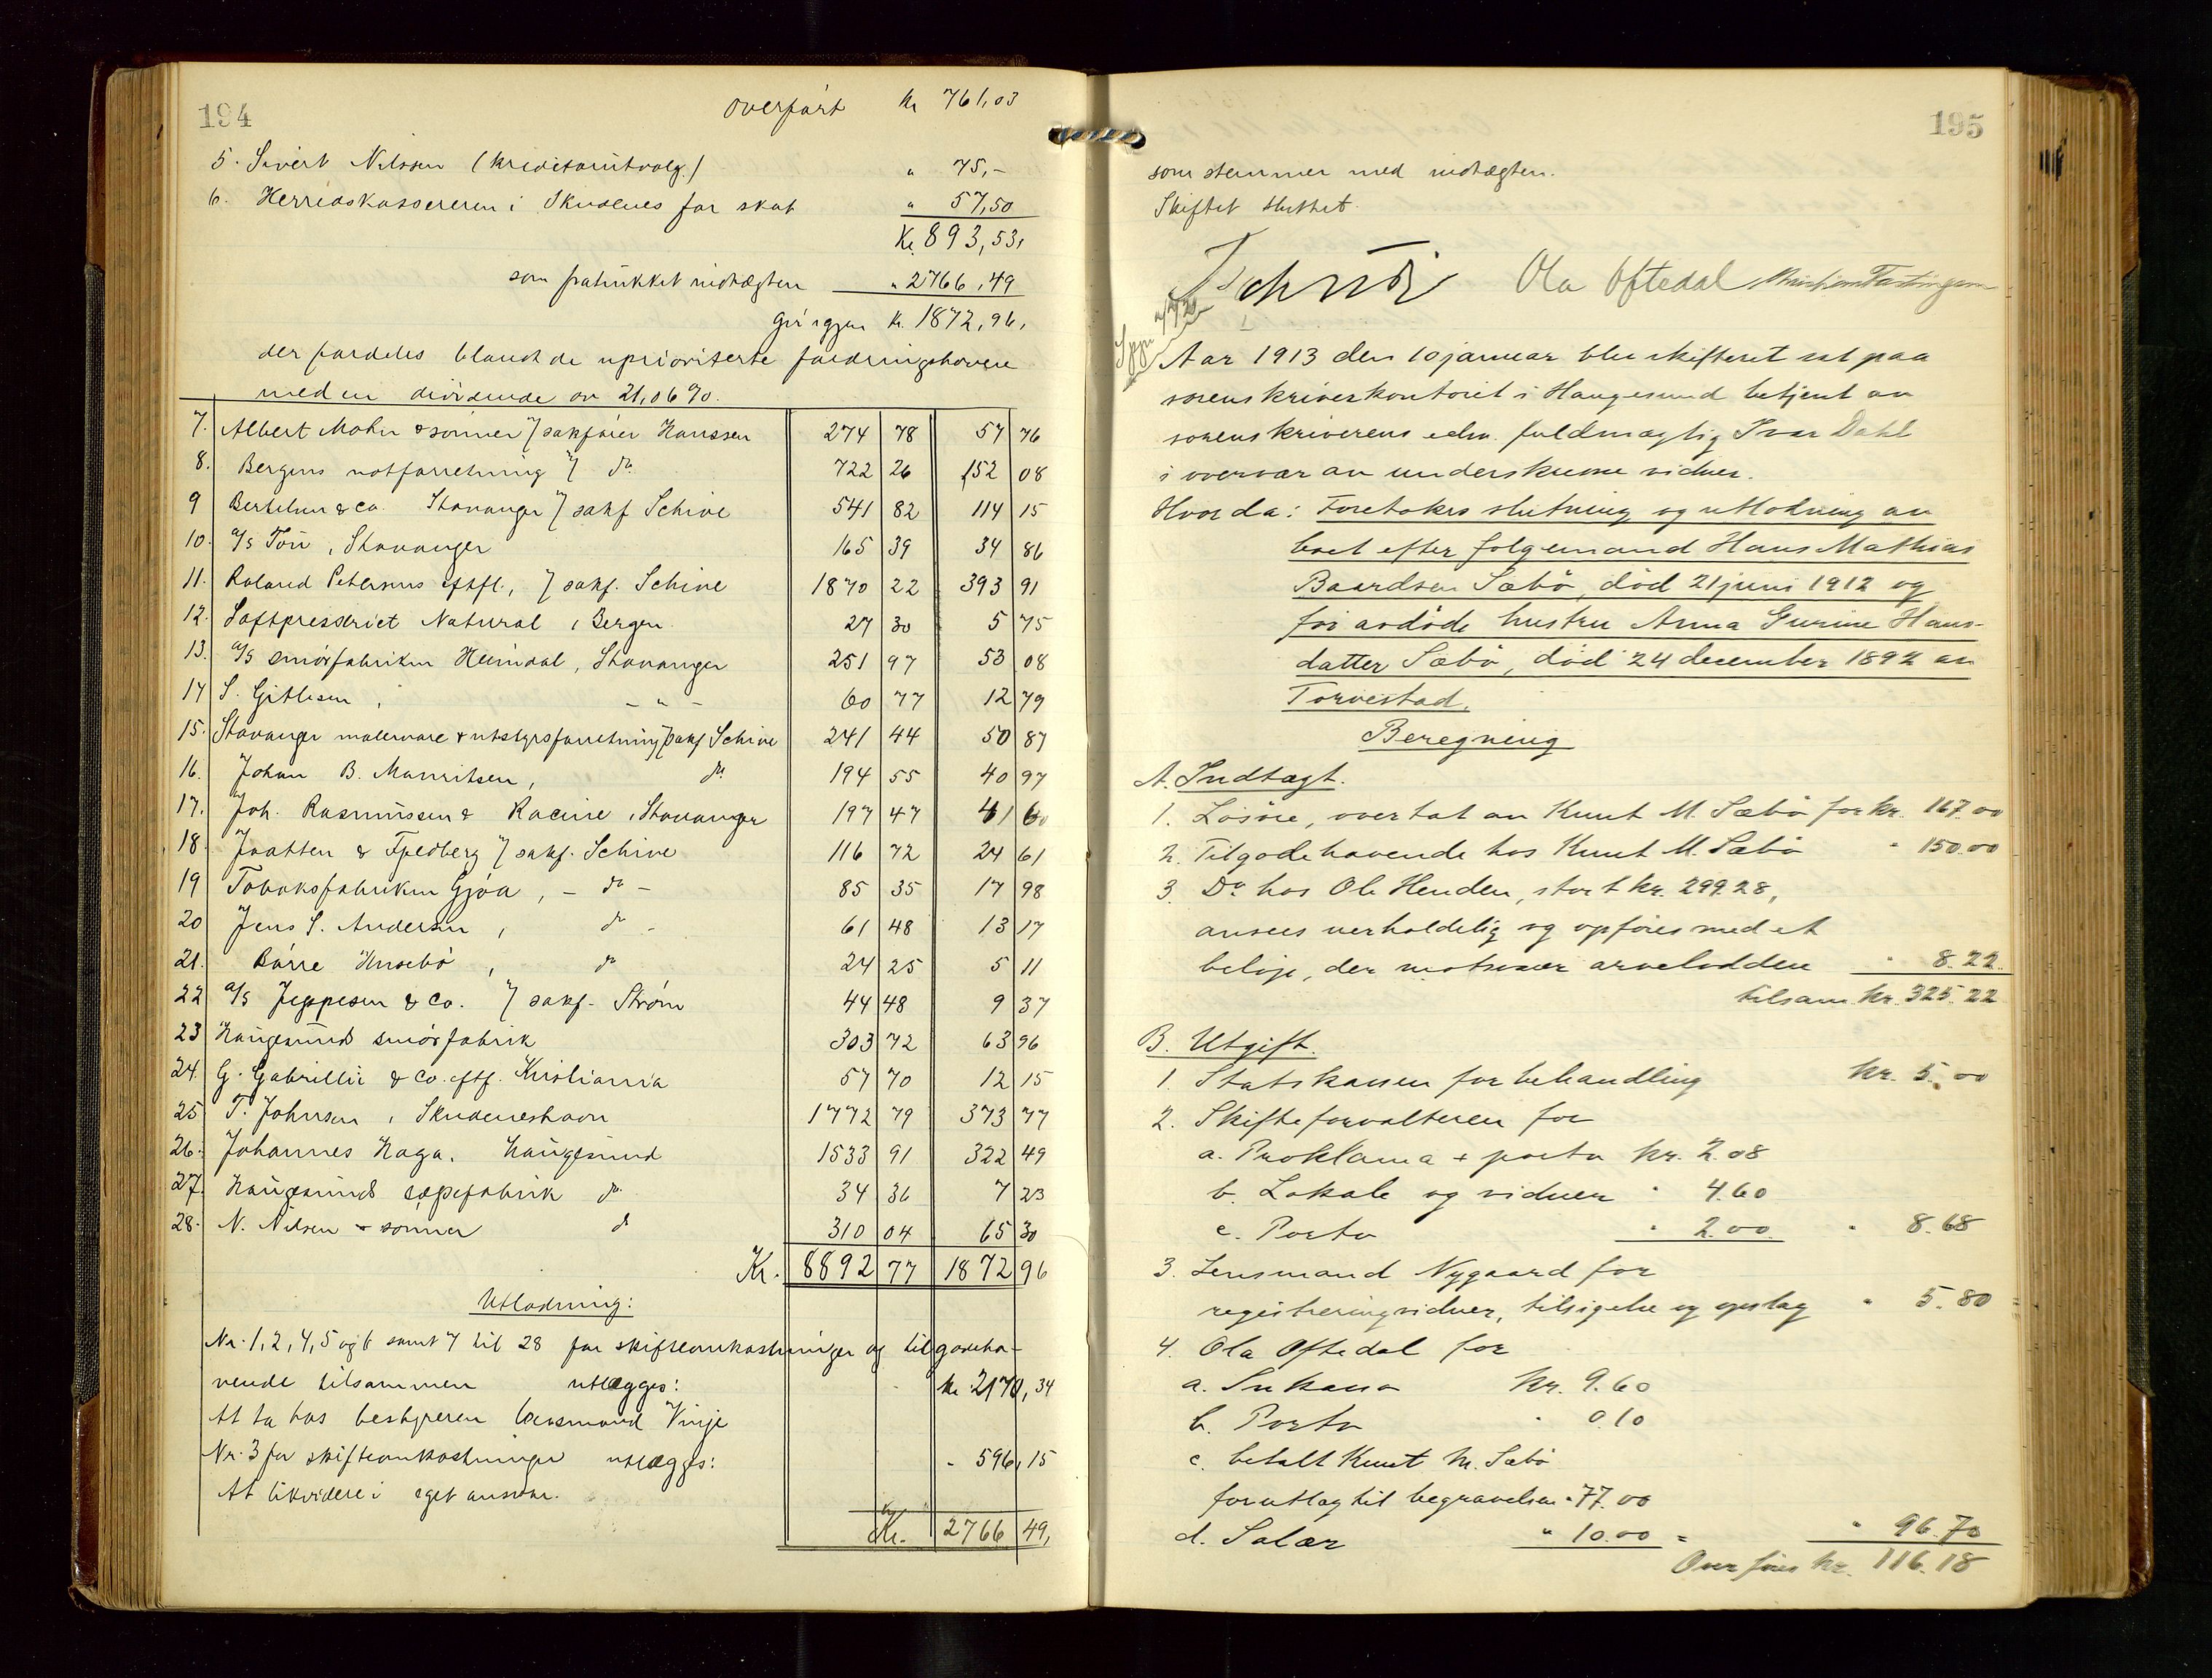 194
Overført Kr 761,03
5. Sivert Nilssen (kreditorutvalg.) " 75,-
6. Herredskassereren i Skudenes for skat " 57,50
Kr. 893,53,
som fratrukket indtægten " 2766,49
Gir igjen Kr. 1872,96,
der fordeles blandt de uprioriterte fordringshavere
med en dividende av 21,06 %.
7. Albert Mohn & sønner v/ sakfører Hanssen 274 78 57 76
8. Bergens notforretning v/ do 722 26 152 08
9 Bertelsen & Co. Stavanger v/ sakf Schive 541 82 114 15
10. A/S Tou, Stavanger 165 39 34 86
11. Roland Petersens eftfl., v/ sakf. Schive 1870 22 393 91
12. Saftpresseriet Natural, Bergen 27 30 5 75
13. A/S smørfabriken Heimdal, Stavanger 251 97 53 08
14 S. Gitlesen, - " - 60 77 12 79
15. Stavanger malervare & utstyrsforretning v/ sakf Schive 241 44 50 87
16. Johan B. Mauritsen, do 194 55 40 97
17. Joh. Rasmussen & Racine, Stavanger 197 47 41 60
18. Jaatten & Fjedberg v/ sakf. Schive 116 72 24 61
19 Tobaksfabriken Gjøa, - do - 85 35 17 98
20 Jens S. Andersen, do - 61 48 13 17
21. Børre Husebø, do 24 25 5 11
22 A/S Jeppesen & Co. v/ sakf. Strøm 44 48 9 37
23 Haugesunds smørfabrik 303 72 63 96
24. G. Gabrillii & Co. eftf. Kristiania 57 70 12 15
25 T. Johnsen, Skudeneshavn 1772 79 373 77
26. Johannes Haga. Haugesund 1533 91 322 49
27. Haugesunds sæpefabrik do 34 36 7 23
28. N. Nilsen & sønner d 310 04 65 30
Kr. 8892 77 1872 96
Utlodning:
Nr. 1, 2, 4, 5 og 6 samt 7 til 28 for skifteomkostninger og tilgodeha-
vende tilsammen utlægges: Kr 2170,34
At ta hos bestyreren lensmand Vinje
Nr. 3 for skifteomkostninger utlægges: " 596,15
At likvidere i eget ansvar.
Kr. 2766 49,
195
som stemmer med indtægten.
Skiftet sluttet.
Ola Oftedal
Aar 1913 den 10 januar blev skifteret sat paa
sorenskriverkontoret i Haugesund betjent av
sorenskriverens edsv. fuldmægtig Ivar Dahl
i overvær av underskrevne vidner.
Hvorda: Foretokes slutning og utlodning av
boet efter følgemand Hans Mathias
Baardsen Sæbø, død 21 juni 1912 og
før avdøde hustru Anna Gurine Hans-
datter Sæbø, død 24 december 1892 av
Torvestad.
Beregning
A. Indtægt.
1. Løsøre, overtat av Knut M. Sæbø for kr. 167.00
2. Tilgodehavende hos Knut M. Sæbø " 150.00
3. Do hos Ole Henden, stort kr. 299.28,
ansees uerholdelig og opføres med et
beløp, der motsvarer arvelodden " 8.22.
tilsam. kr. 325.22
B. Utgift.
1. Statskassen for behandling kr. 5.00
2. Skifteforvalteren for
a. Proklama + porto kr. 2.08
b. Lokale og vidner " 4.60
c. Porto " 2.00 " 8.68
3. Lensmand Nygaard for
registreringvidner, tilsigelse og opslag " 5.80 =
4. Ola Oftedal for
a. Inkasso kr. 9.60
b. Porto " 0.10
c. betalt Knut M. Sæbø
for utlæg til begravelsen " 77.00
d. Salær " 10.00 = " 96.70
Overføres kr. 116.18